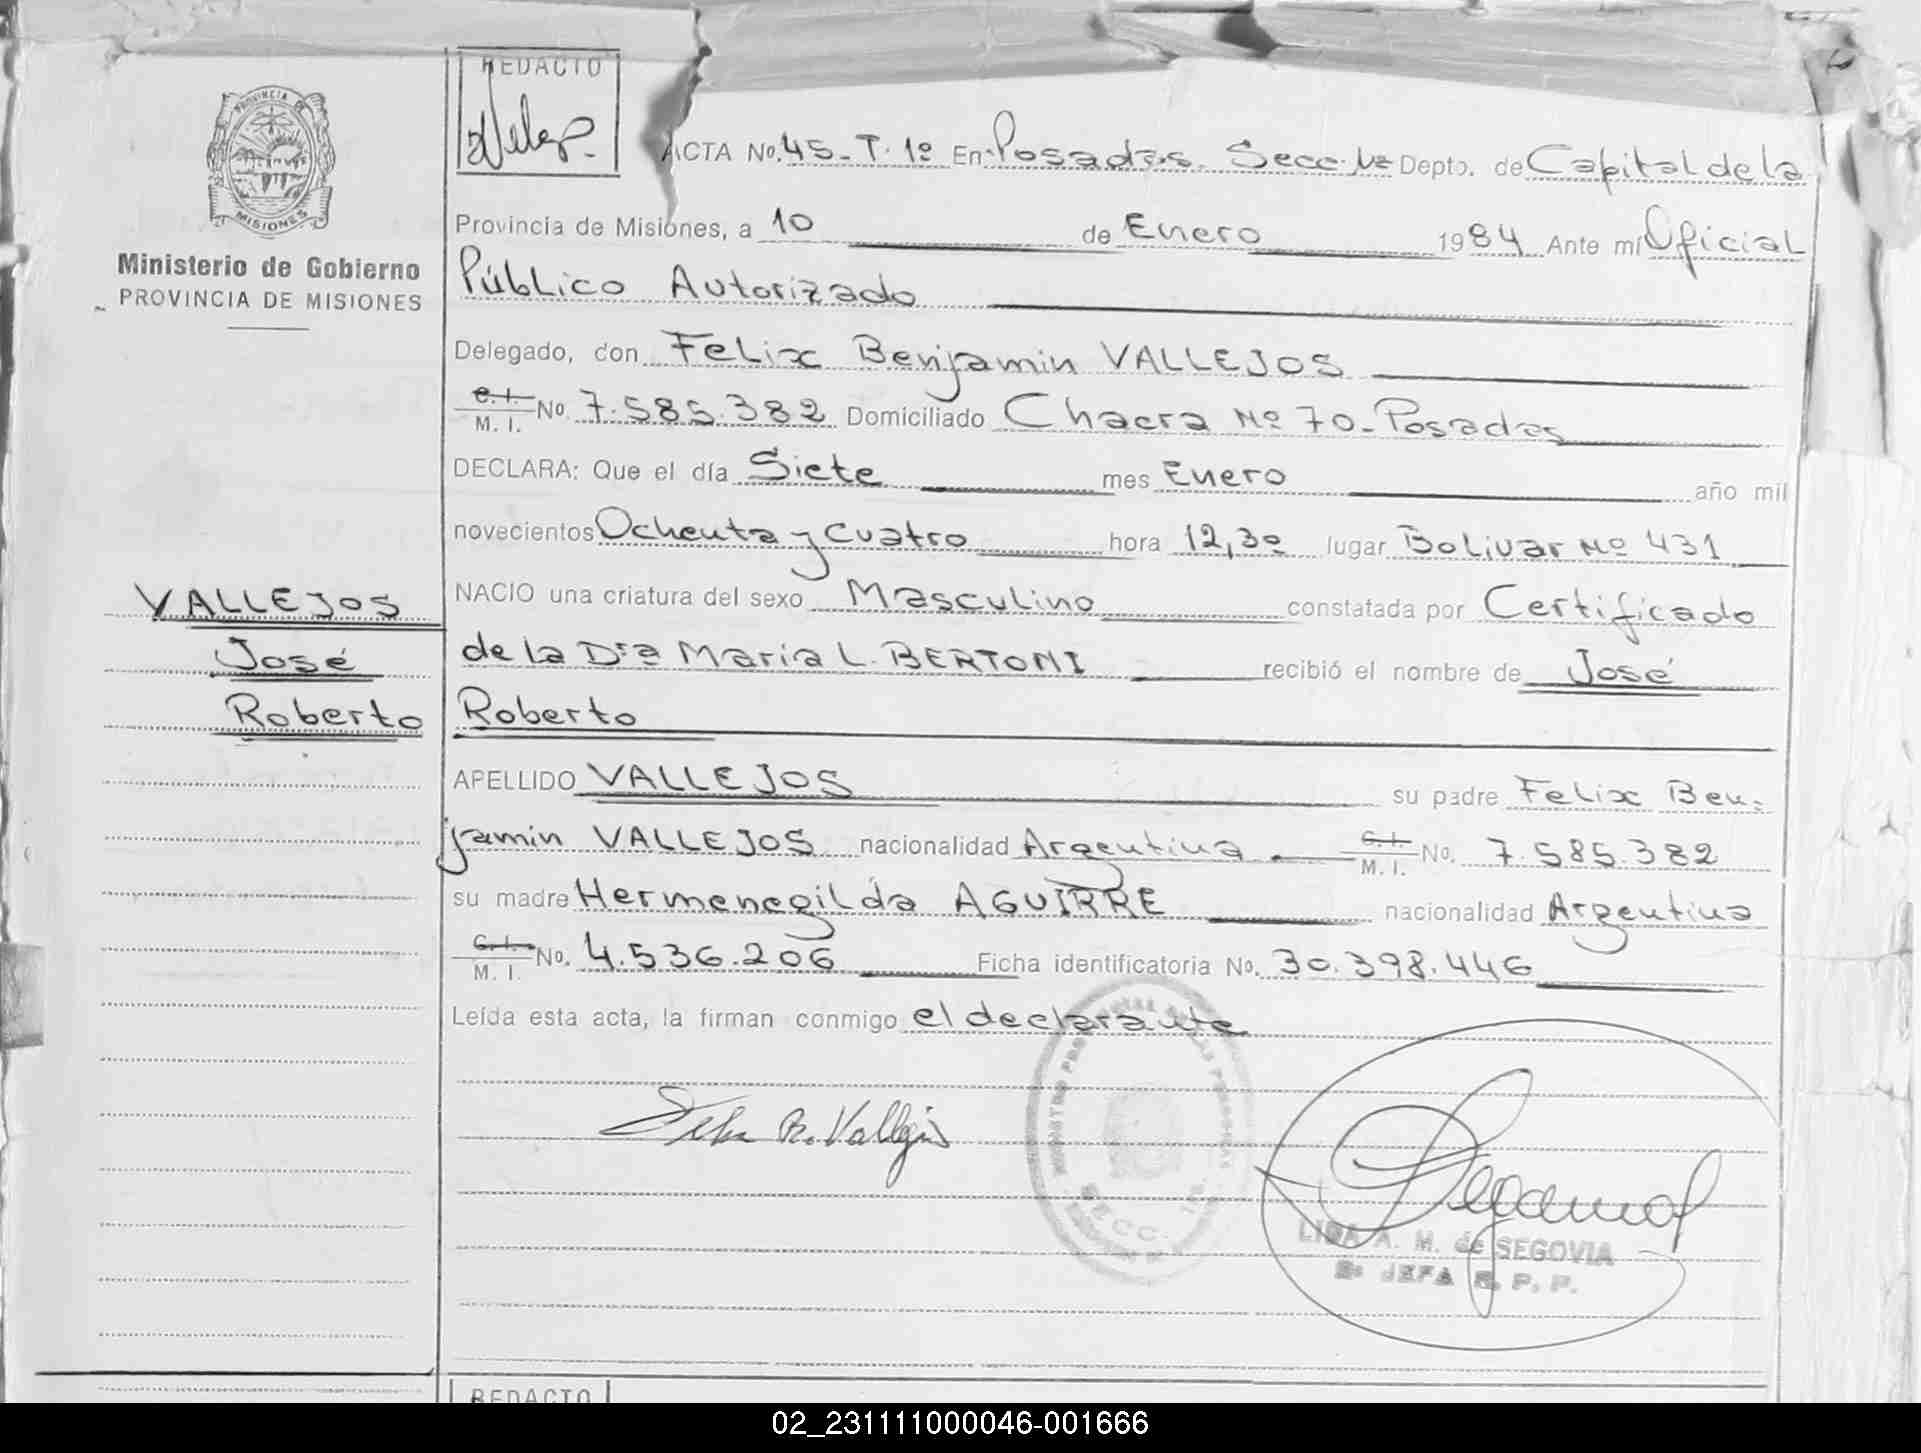 PROVINCIA DE
MISIONES
Ministerio de Gobierno
PROVINCIA DE MISIONES
REDACTO
ACTA No. 45 - T. 1º En Posadas. Secc. 1ra Depto. de Capital de la
Provincia de Misiones, a 10 de Enero 1984 Ante mí Oficial
Público Autorizado
Delegado, don Felix Benjamin VALLEJOS
C. I. / M. I. No. 7.585.382 Domiciliado Chacra Nº 70 - Posadas
DECLARA: Que el día Siete mes Enero año mil
novecientos Ochenta y Cuatro hora 12,30 lugar Bolivar Nº 431
NACIO una criatura del sexo Masculino constatada por Certificado
de la Dra Maria L. BERTONI recibió el nombre de José
Roberto
VALLEJOS
José
Roberto
APELLIDO VALLEJOS su padre Felix Ben-
jamin VALLEJOS nacionalidad Argentina C. I. / M. I. No. 7.585.382
su madre Hermenegilda AGUIRRE nacionalidad Argentina
C. I. / M. I. No. 4.536.206 Ficha identificatoria No. 30.398.446
Leída esta acta, la firman conmigo el declarante
SECC. 1ra.
LIDA A. M. de SEGOVIA
JEFA R. P. P.
REDACTO
02_231111000046-001666